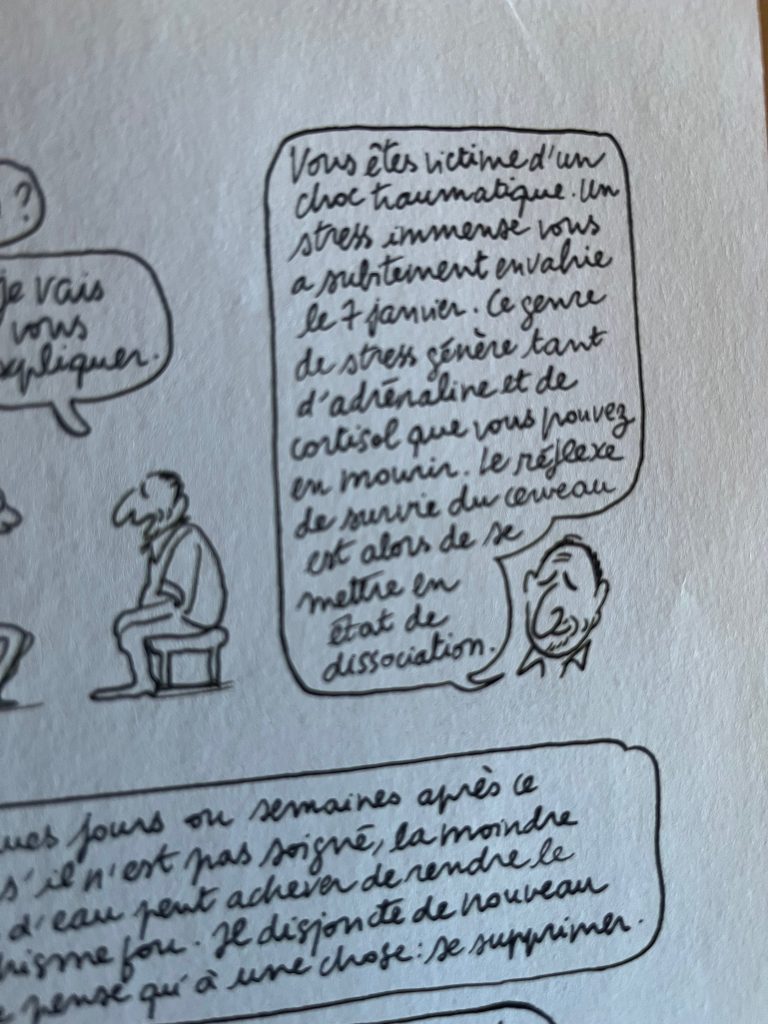 ?
Je vais
vous
expliquer.
Vous êtes victime d'un
choc traumatique. Un
stress immense vous
a subitement envahie
le 7 janvier. Ce genre
de stress génère tant
d'adrénaline et de
cortisol que vous pouvez
en mourir. Le réflexe
de survie du cerveau
est alors de se
mettre en
état de
dissociation.
jours ou semaines après ce
s'il n'est pas soigné, la moindre
d'eau peut achever de rendre le
fou. Il disjoncte de nouveau
pense qu'à une chose : se supprimer.